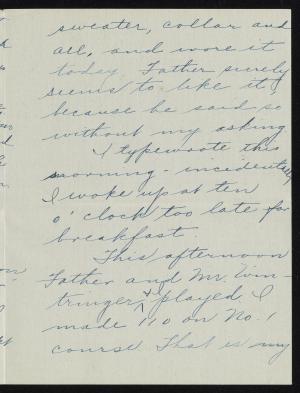 sweater, collar and
all, and wore it
today. Father surely
seems to like it,
because he said so
without my asking
I typewrote this
morning - incidentally
I woke up at ten
o'clock too late for
breakfast.
This afternoon
Father and Mr. Win-
tringer, + played. I
made 110 on No. 1
course. That is my